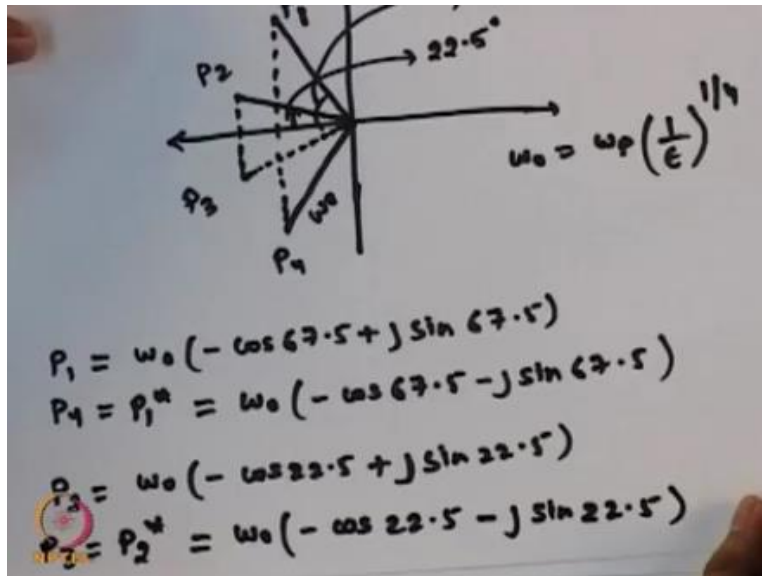 P2
22.5°
P3
ω0
P4
ω0 = ωp(1/ε)^1/4
P1 = ω0(- cos 67.5 + j sin 67.5)
P4 = P1* = ω0(- cos 67.5 - j sin 67.5)
P2 = ω0(- cos 22.5 + j sin 22.5)
P3 = P2* = ω0(- cos 22.5 - j sin 22.5)
NPTEL